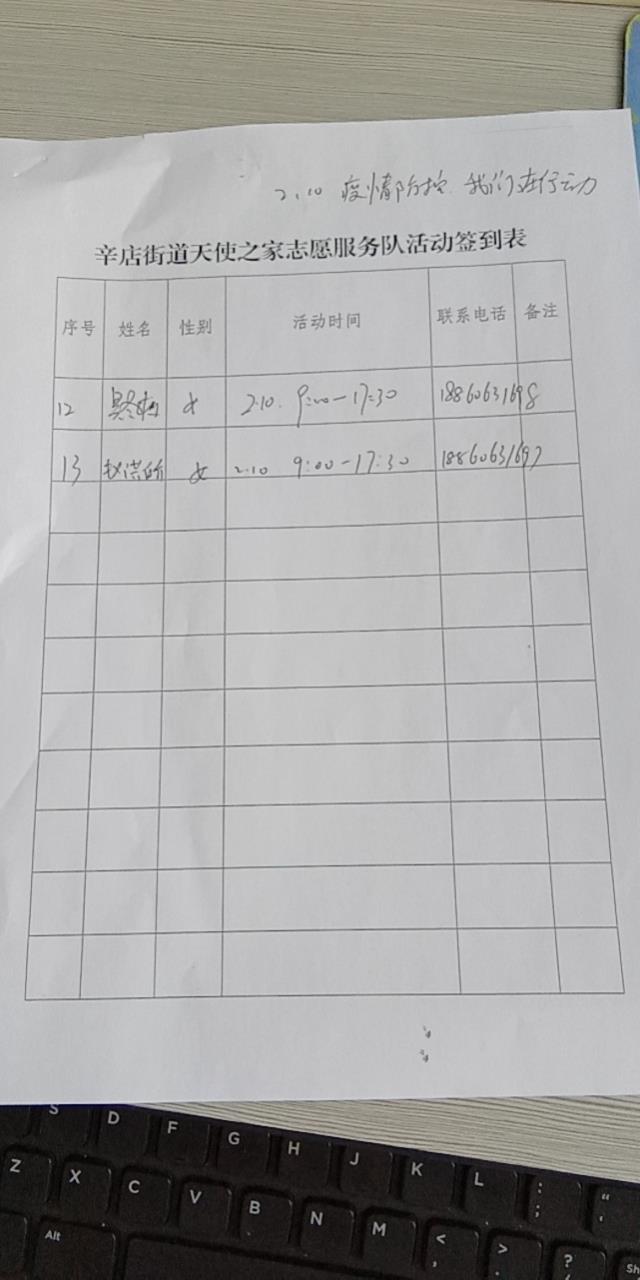 2.10 疫情防控 我们在行动
辛店街道天使之家志愿服务队活动签到表
序号 姓名 性别 活动时间 联系电话 备注
12 女 2.10. 9:00-17:30 18860631698
13 赵洪 女 2.10 9:00-17:30 18860631697
S D F G H J K L : ;
Z X C V B N M < , > . ? /
Alt